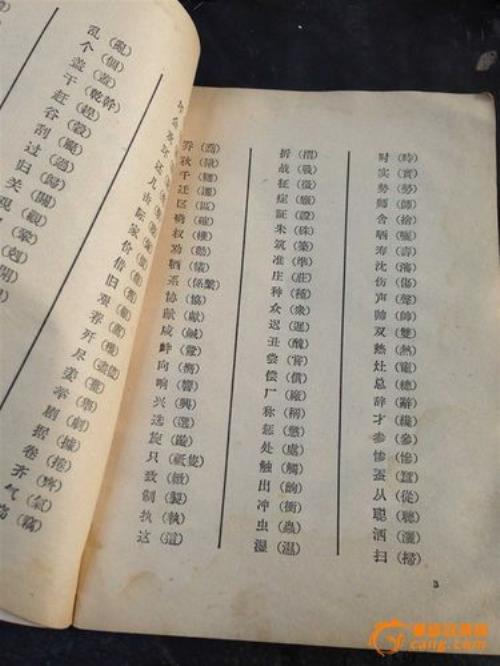 乱（亂）
个（個）
盖（蓋）
干（乾幹）
赶（趕）
谷（穀）
刮（颳）
过（過）
归（歸）
关（關）
观（觀）
旧（舊）
歼（殲）
尽（盡儘）
姜（薑）
举（舉）
剧（劇）
据（據）
卷（捲）
齐（齊）
气（氣）
乔（喬）
秋（鞦）
千（韆）
迁（遷）
区（區）
确（確）
权（權）
劝（勸）
牺（犧）
系（係繫）
协（協）
献（獻）
咸（鹹）
衅（釁）
向（嚮）
响（響）
兴（興）
选（選）
旋（鏇）
只（祇隻）
致（緻）
制（製）
执（執）
这（這）
折（摺）
战（戰）
征（徵）
症（癥）
証（證）
朱（硃）
筑（築）
准（準）
庄（莊）
种（種）
众（衆）
迟（遲）
丑（醜）
尝（嘗）
偿（償）
厂（廠）
称（稱）
惩（懲）
处（處）
触（觸）
出（齣）
冲（衝）
虫（蟲）
湿（濕）
时（時）
实（實）
势（勢）
师（師）
舍（捨）
晒（曬）
寿（壽）
沈（瀋）
伤（傷）
声（聲）
帅（帥）
双（雙）
热（熱）
灶（竈）
总（總）
辞（辭）
才（纔）
参（參）
惨（慘）
蚕（蠶）
从（從）
聪（聰）
洒（灑）
扫（掃）
3
cang.com